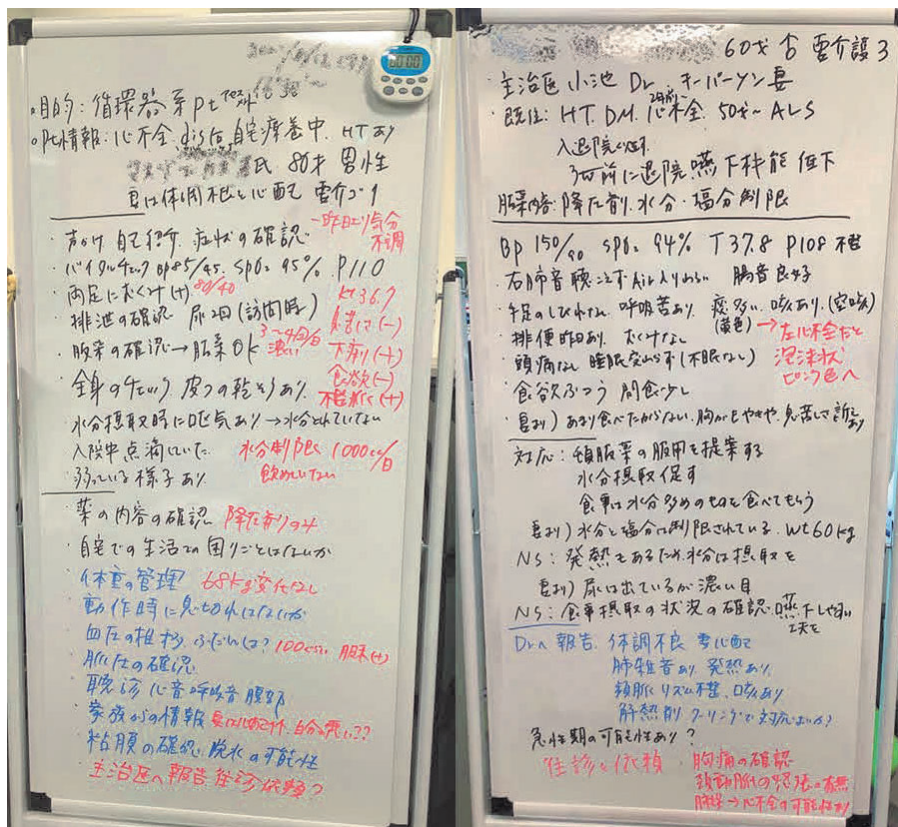 目的:循環器系pt
pt情報:心不全 自宅療養中 HTあり
氏 80才 男性
妻は体調不良と心配 要介護1
・声かけ 自己紹介 症状の確認
一昨日より気分不調
・バイタルチェック BP85/45. SpO2 95% P110
80/40
両足にむくみ(+)
Kt36.7
・排泄の確認 尿2回(訪問時)
3〜4回/日
濃い
息苦しさ(-)
・服薬の確認→服薬OK
下痢(+)
・全身のチェック 皮フの乾そうあり
食欲(-)
不整脈(+)
・水分摂取時に嘔気あり→水分とれていない
入院中点滴していた
水分制限 1000cc/日
飲めていない
・弱っている様子あり
・薬の内容の確認 降圧剤のみ
・自宅での生活での困りごとはないか
体重の管理 68kg変化なし
動作時に息切れはないか
血圧の推移、ふだんは? 100くらい
脈圧の確認
聴診 心音 呼吸音 腹部
家族からの情報
粘膜の確認 脱水の可能性
主治医へ報告 往診依頼?
60才 要介護3
・主治医 小池Dr. キーパーソン妻
・既往:HT. DM. 心不全. 50才〜ALS
2年前〜
入退院
3日前に退院 嚥下機能 低下
服薬内容:降圧剤. 水分・塩分制限
BP 150/90 SpO2 94% T37.8 P108 不整
・右肺音聴こえず Air入りわるい 腸音良好
・手足のしびれなし 呼吸苦あり 痰多い. 咳あり.(空咳)
(黄色)→左心不全だと
泡沫状
ピンク色へ
・排便昨日あり むくみなし
・頭痛なし 睡眠変わらず(不眠なし)
・食欲ふつう 間食少し
妻より)あまり食べたがらない. 胸がもやもや. 息苦しさ訴えあり
対応:頓服薬の服用を提案する
水分摂取促す
食事は水分多めのものを食べてもらう
妻より)水分と塩分は制限されている. Wt60kg
NS:発熱もあるため水分は摂取を
妻より)尿は出ているが濃い目
NS:食事摂取の状況の確認. 嚥下しやすい工夫を
Drへ報告. 体調不良 妻心配
肺雑音あり 発熱あり
頻脈 リズム不整. 咳あり
解熱剤 クーリングで対応よいか?
急性期の可能性あり?
往診を依頼 胸痛の確認
頚動脈の怒張の有無